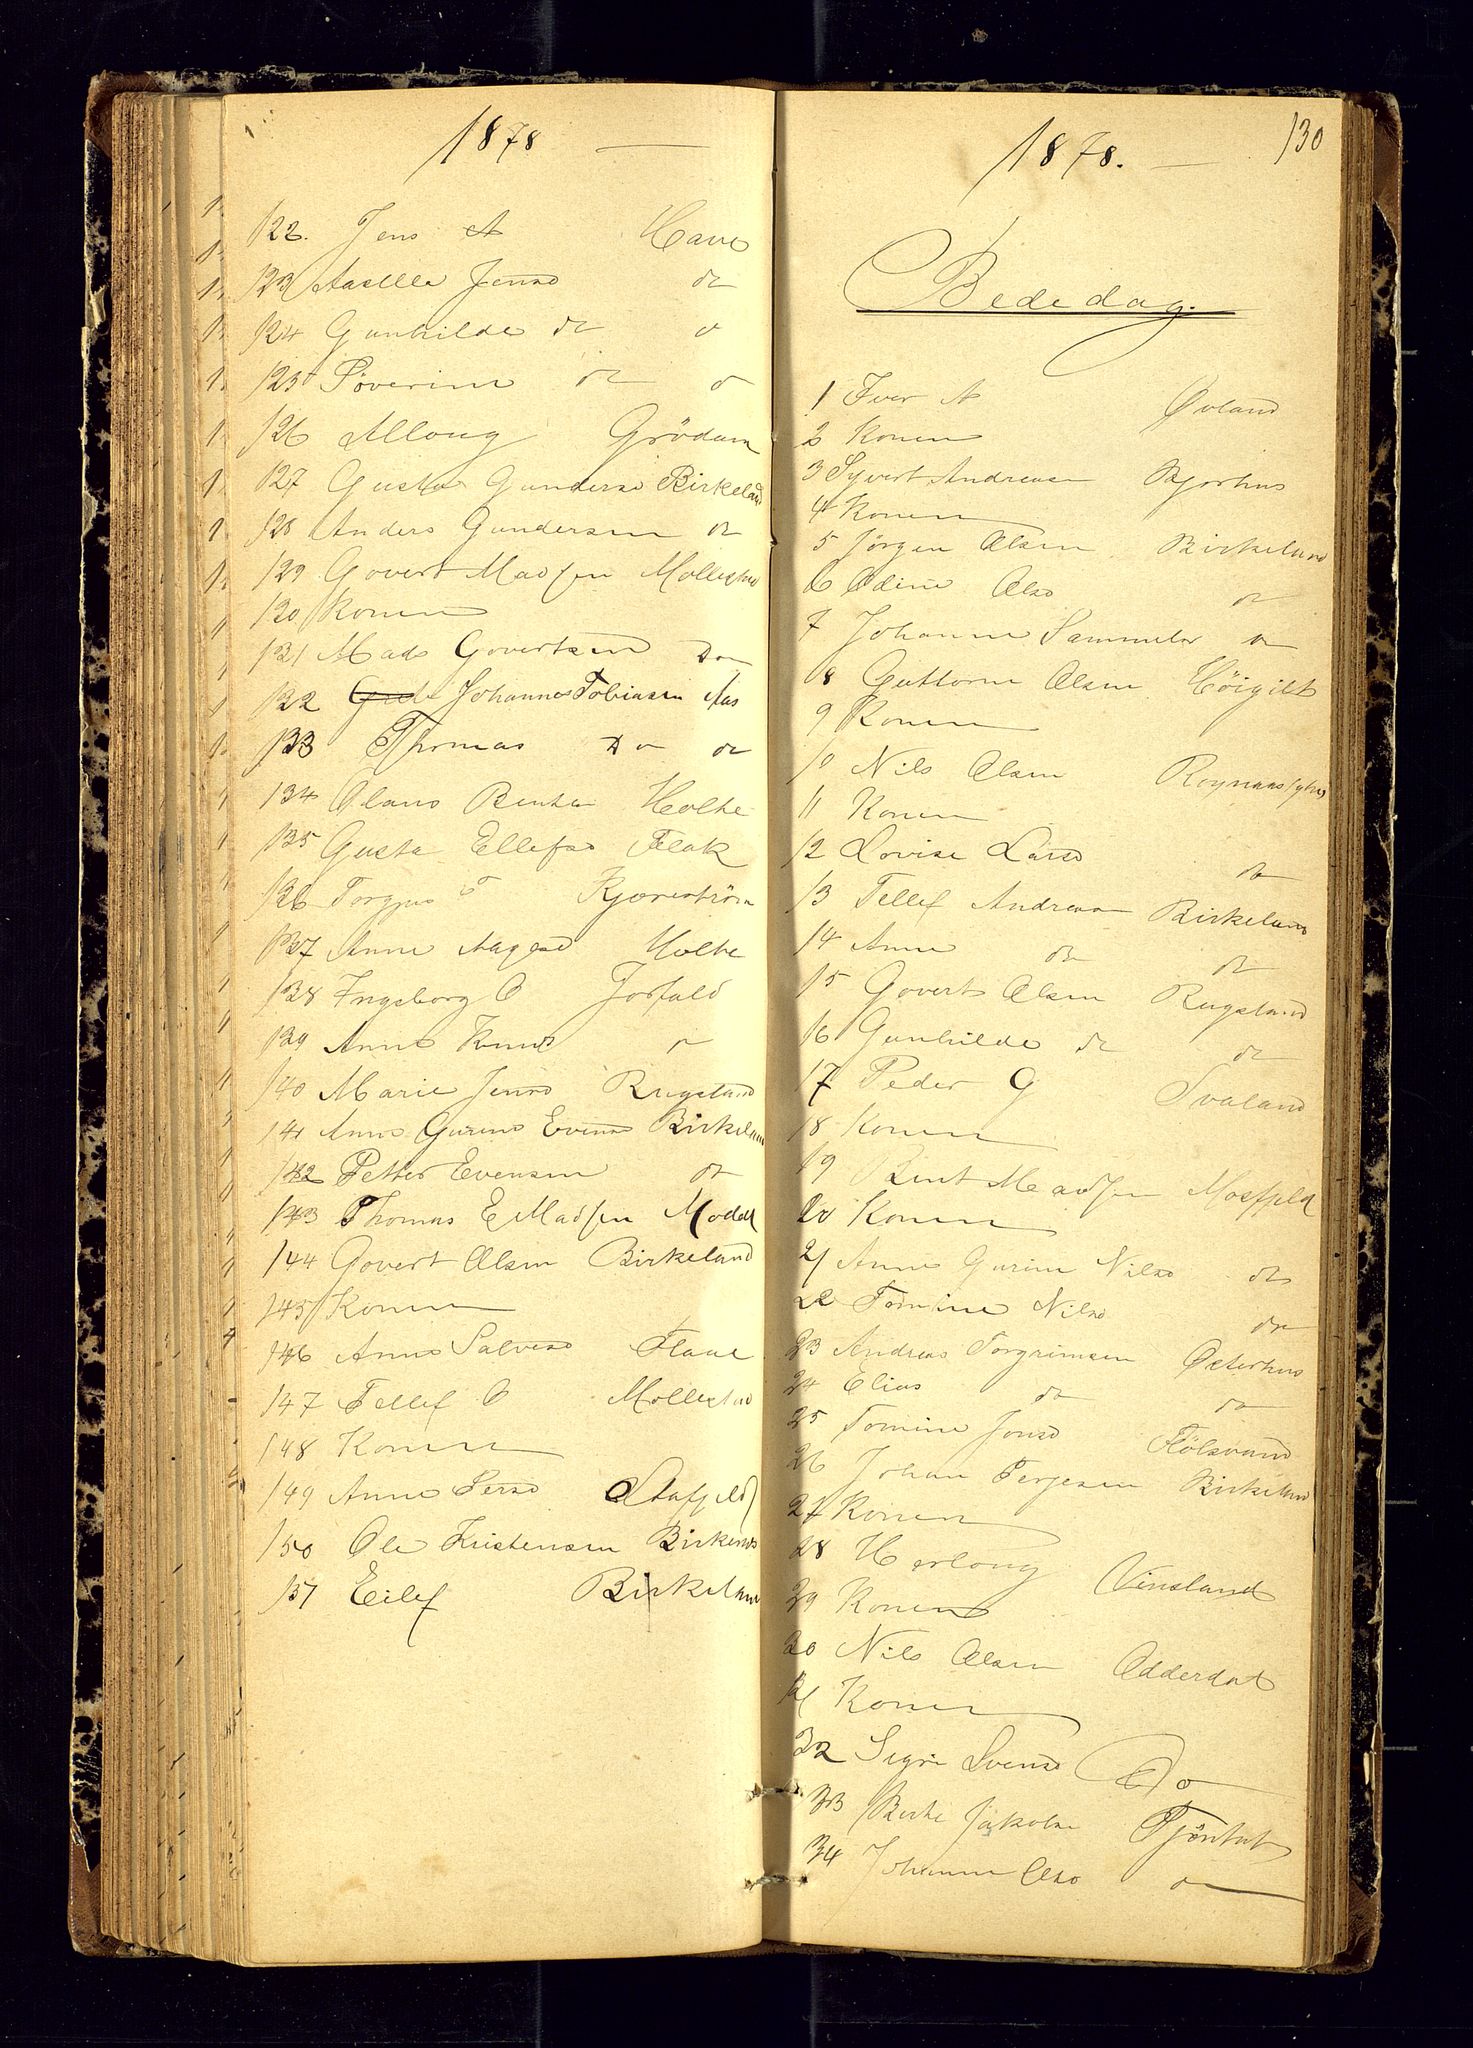 1878
122. Jens A Have
123 Aaselle Jensd do
124 Gunhilde do d
125 Söverine do d
126 Alloug Grödum
127 Gusta Gundersd Birkeland
128 Anders Gundersen do
129 Govert Madsen Mollestad
130 Konen
131 Mads Govertsen Do
132 Johannes Tobiasen Aas
133 Thomas Do do
134 Olaus Bentsen Holte
135 Gusta Ellefsd Flak
136 Torgjus T
137 Anne Aagesd Holte
138 Ingsborg O Jorfald
139 Anne Knud d
140 Marie Jensd Rugsland
141 Anne Gurine Evensd Birkeland
142 Petter Evensen do
143 Thomas E Madsen Moddel
144 Govert Olsen Birkeland
145 Konen
146 Anne Salvesd Flaae
147 Tellef O Mollestad
148 Konen
149 Anne Persd
150 Ole Kristensen Birkenes
151 Eilef Birkeland
130
1878.
Bededag.
1 Iver A Øvland
2 Konen
3 Syvert Andreasen Bjorhus
4 Konen
5 Jörgen Olsen Birkeland
6 Odine Olsd do
7 Johanne Sammelsd do
8 Guttorm Olsen Höigilt
9 Konen
10 Nils Olsen
11 Konen
12 Lovise Larsd do
13 Tellef Andreasen Birkeland
14 Anne do do
15 Govert Olsen Rugsland
16 Gunhilde do do
17 Peder G Svaland
18 Konen
19 Bent Madsen Mosfjeld
20 Konen
21 Anne Gurine Nilsd do
22 Tomine Nilsd do
23 Andreas Torgrimsen Østerhus
24 Elias do do
25 Tomine Jonsd Flölsvand
26 Johan Terjesen Birkeland
27 Konen
28 Herloug Vinsland
29 Konen
30 Nils Olsen Odderdal
31 Konen
32 Sigri Svensd Do
33 Berte Jakobsd
34 Johanne Olsd do